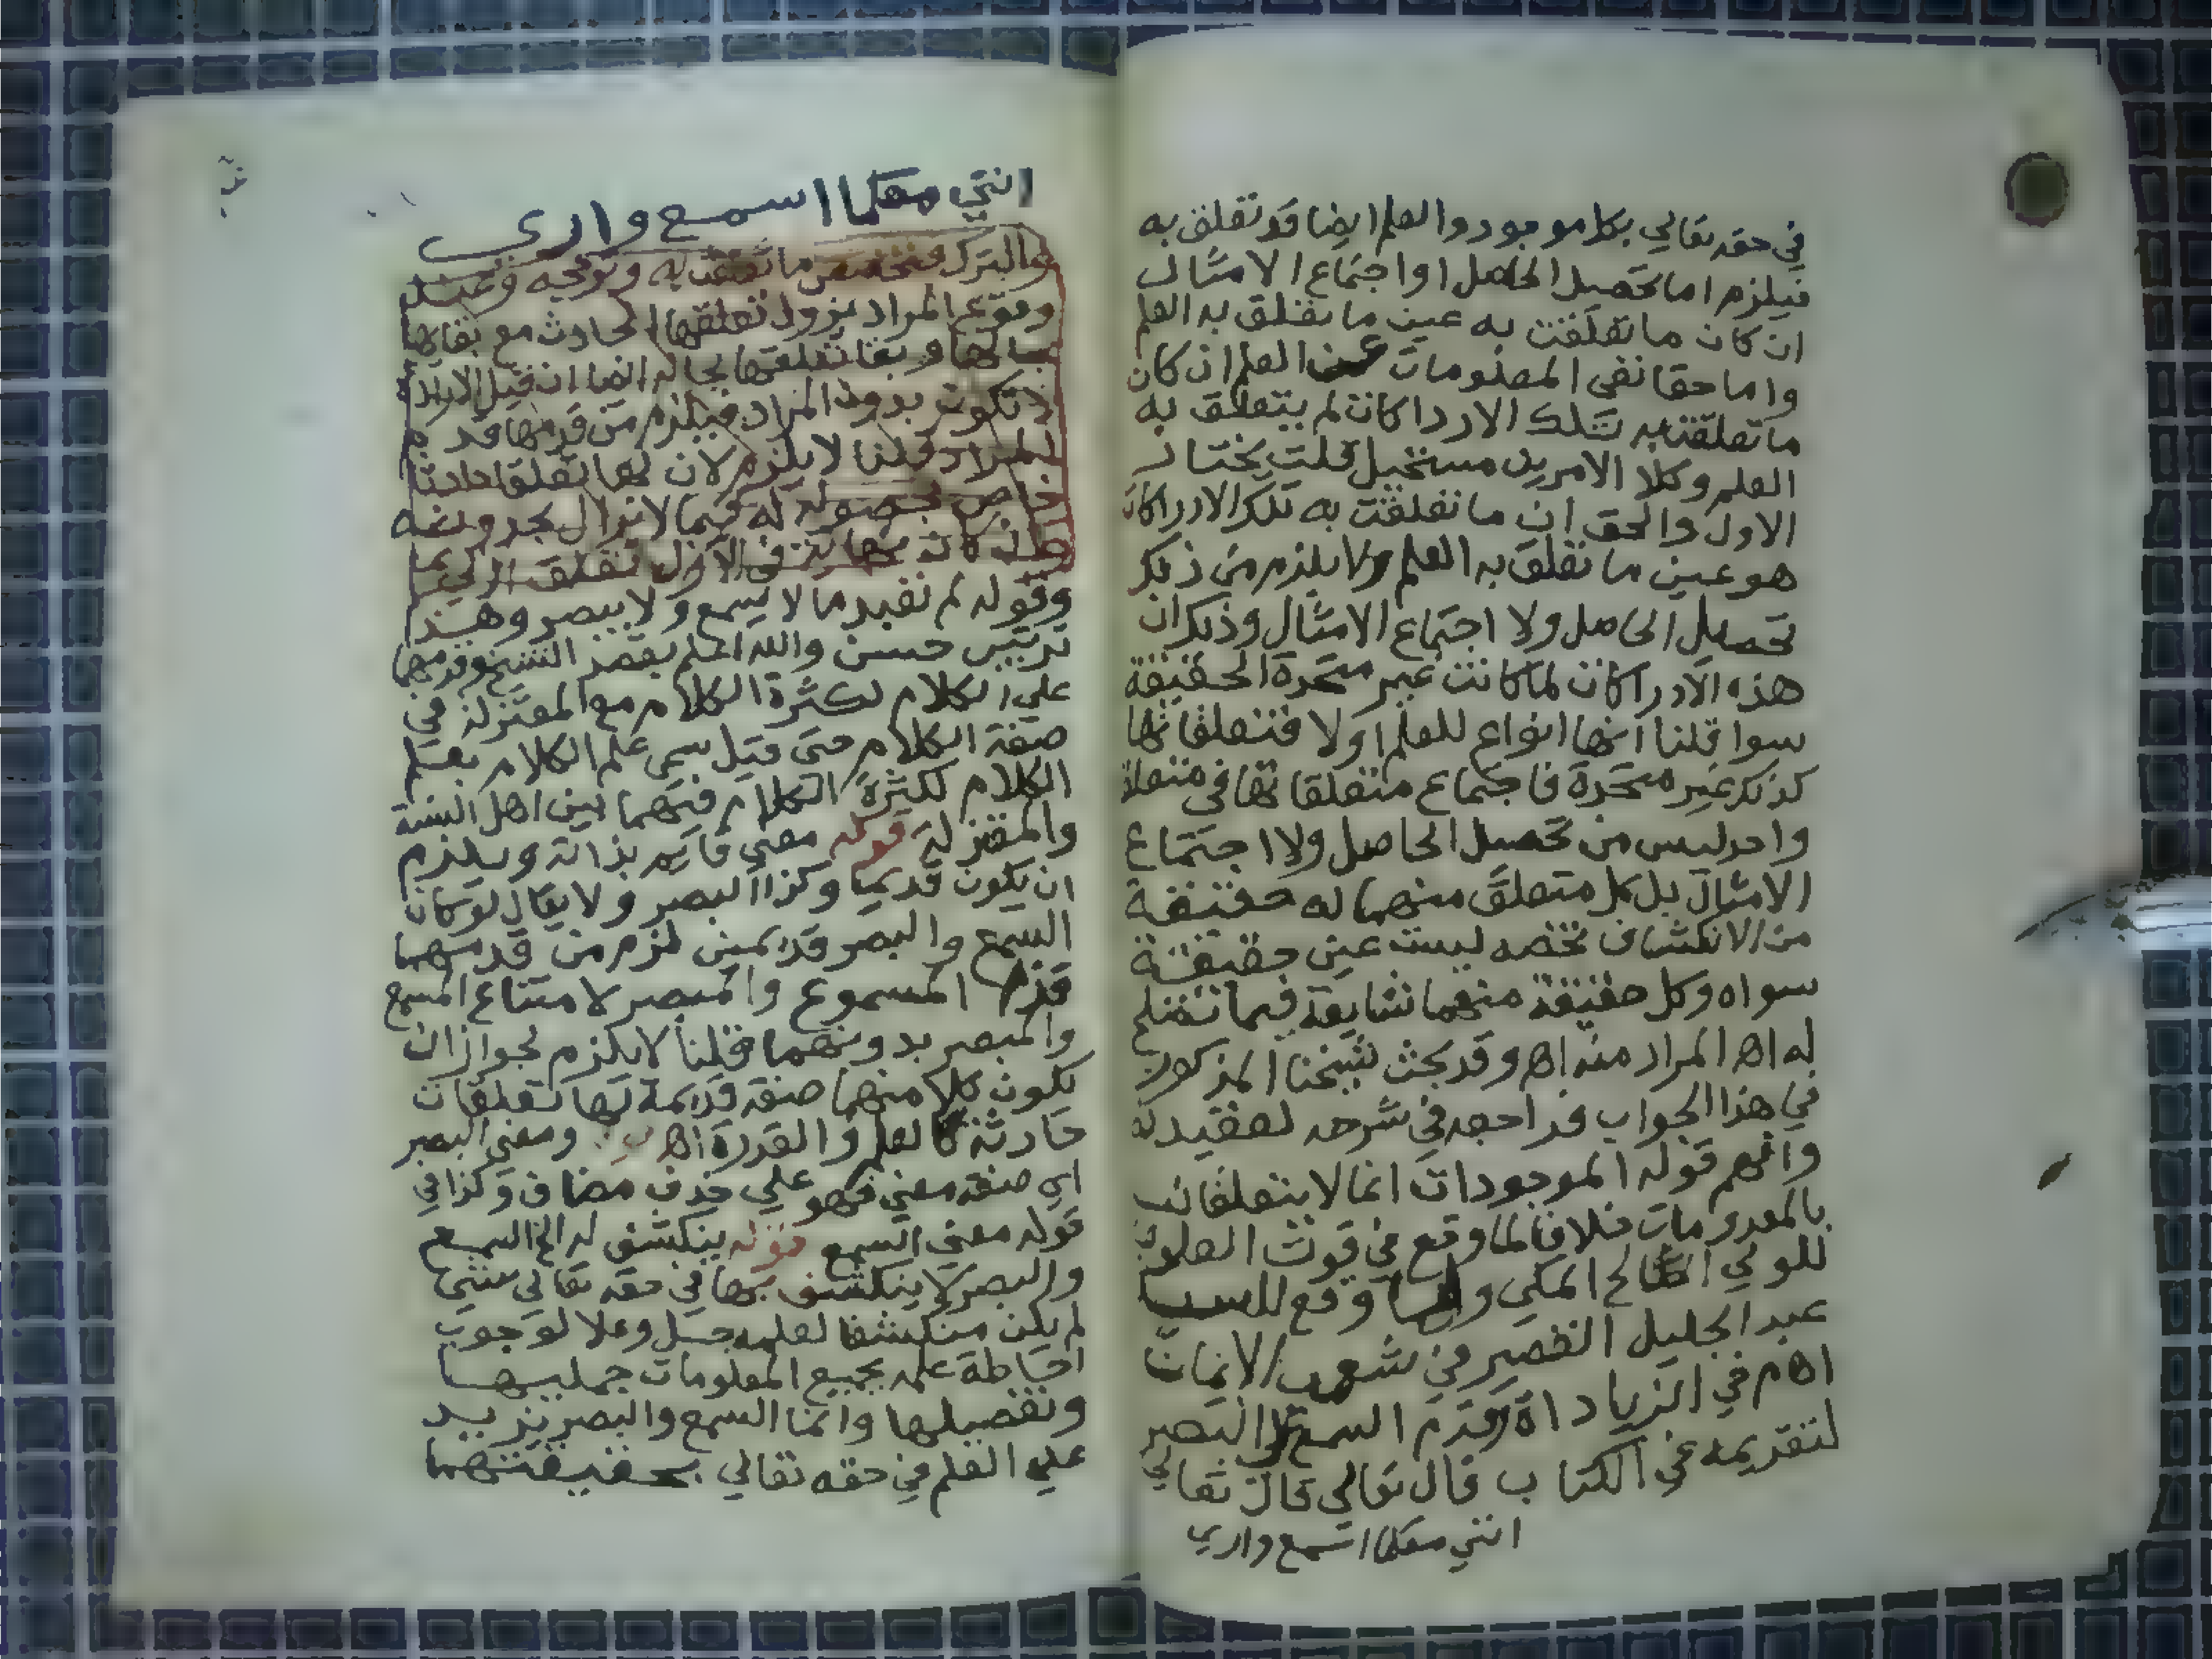 في حقه تعالي بكل موجود والعلم ايضا قد تعلق به
فيلزم اما تحصيل الحاصل او اجتماع الامثال
ان كان ما تعلقت به عين ما تعلق به العلم
واما حقا نفى المعلومات عن العلم ان كان
ما تعلقت به تلك الادراكات لم يتعلق به
العلم وكلا الامرين مستحيل قلت يختار
الاول والحق ان ما تعلقت به تلك الادراكات
هو عين ما تعلق به العلم ولا يلزم من ذلك
تحصيل الحاصل ولا اجتماع الامثال وذلك ان
هذه الادراكات لما كانت غير متحدة الحقيقة
سوا قلنا انها انواع للعلم اولا فتعلقاتها
كذلك غير متحدة فاجتماع متعلقاتها في متعلق
واحد ليس من تحصيل الحاصل ولا اجتماع
الامثال بل كل متعلق منهما له حقيقة
من الانكشاف تخصه ليست عين حقيقة
سواه وكل حقيقة منهما نشايعة فيما تصلح
له اه المراد منه اه وقد بحث شيخنا المذكور
في هذا الجواب فراجعه في شرحه لعقيدته
وافهم قوله الموجودات انما لا يتعلقان
بالمعدومات خلافا لما وقع في قوت القلوب
للولي الصالح المكي ولما وقع للسيد
عبد الجليل القصير في شعب الايمان
اه م في الزيادات وقدم السمع على البصر
لتقديمه في الكتاب قال تعالى قال تعالي
انني معكما اسمع واري
انني معكما اسمع واري
والترك فتخصص ما تعلقت به وترجحه وعند
وقوع المراد يزول تعلقها الحادث مع بقائها
بحالها وبقا تعلقها بحاله ايضا ان قيل الارادة
لا تكون بدون المراد فيلزم من قدمها قدم
المراد قلنا لا يلزم لان لها تعلقا حادثا
خاص بحصوله له فيما لا يزال بحدوثه
كانت في الازل تعلق ازلي
وقوله لم نقيد ما لا يسمع ولا يبصر وهذا
ترتيب حسن والله اعلم بقصد الشيخ وقدمها
على الكلام لكثرة الكلام مع المعتزلة في
صفة الكلام حتى قيل سمي علم الكلام بعلم
الكلام لكثرة الكلام فيهما بين اهل السنة
والمعتزلة قوله معني قايم بذاته ويلزم
ان يكون قديما وكذا البصر ولا يقال لو كان
السمع والبصر قديمين لزم من قدمهما
قدم المسموع والمبصر لامتناع المسمع
والمبصر بدونهما قلنا لا يلزم لجواز ان
يكون كلا منهما صفة قديمة لها تعلقات
حادثة كالعلم والقدرة اه ومعني البصر
اي صفة معني فهو علي حذف مضاف وكذا في
قوله معني السمع قوله ينكشف له الخ السمع
والبصر لا ينكشف بهما في حقه تعالى شئ
لم يكن منكشفا لعلمه جل وعلا لوجوب
احاطة علمه بجميع المعلومات جمليها
وتفصيلها وانما السمع والبصر يزيد
علي العلم في حقه تعالي بحقيقتهما